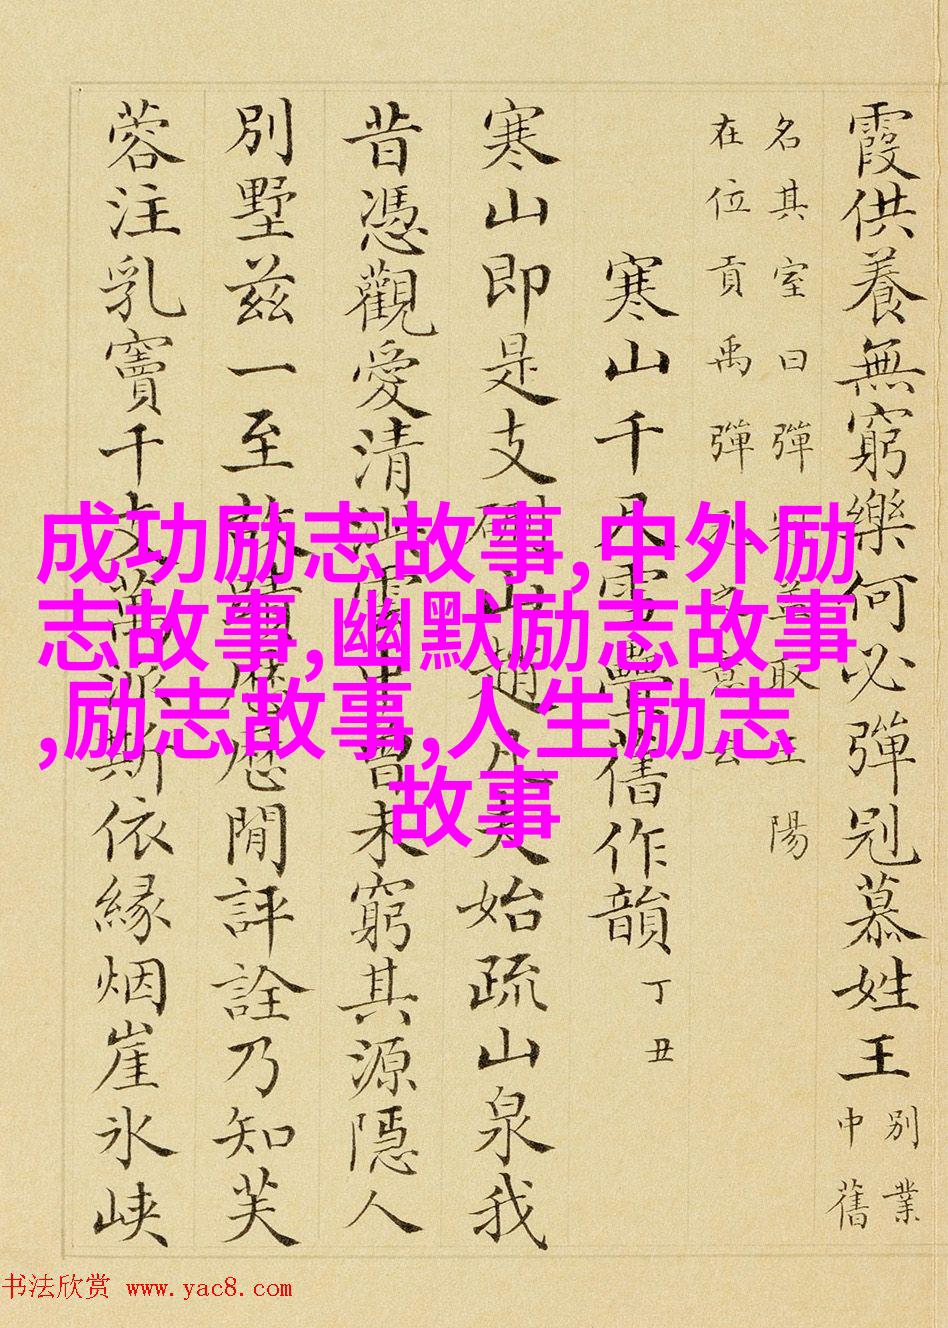 霞供養無窮樂何必彈冠慕姓王
別業
中舊
名其室曰彈冠蓋取王陽
在位貢禹彈冠之意云
寒山千尺雪疊舊作韻 丁丑
寒山即是支硎山趙凡夫始疏山泉我
昔憑觀愛清未窮其源隱人
別墅茲一至故蹟歷歷閒評詮乃知芙
蓉注乳竇千支萬派斯依緣烟崖氷峽
成功励志故事,中外励
志故事,幽默励志故事
,励志故事,人生励志
故事
书法欣赏 www.yac8.com